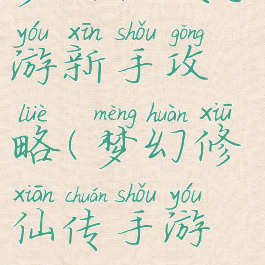 yóu xīn shǒu gōng
游新手攻
lüè mèng huàn xiū
略(梦幻修
xiān chuán shǒu yóu
仙传手游